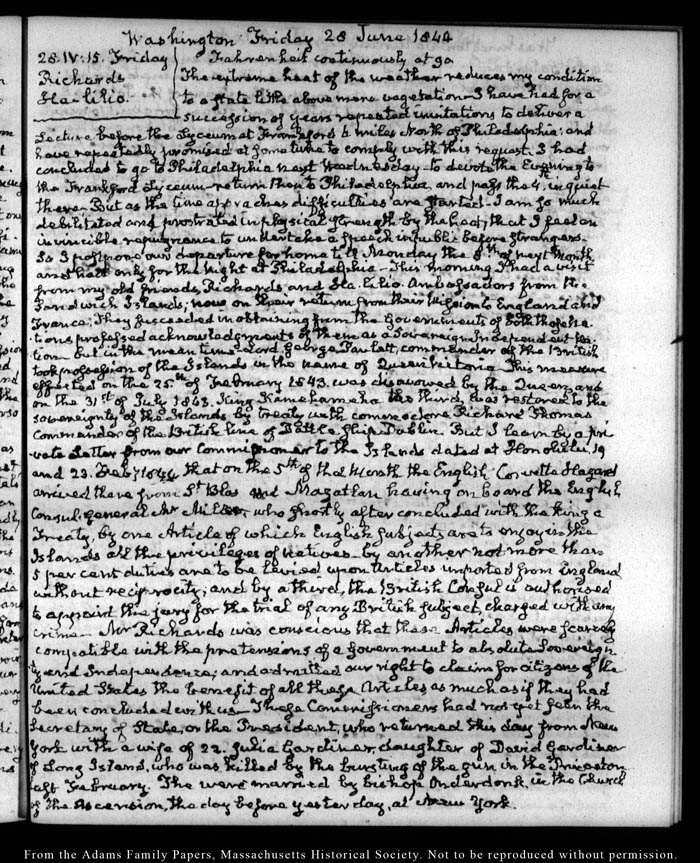 Washington Friday 28 June 1844
28. IV:15. Friday Fahrenheit continuously at 90
Richards The extreme heat of the weather reduces my condition
Haalilio. to a state little above mere vegetation. I have had for a
succession of years repeated invitations to deliver a
Lecture before the Lyceum at Frankford 6 miles North of Philadelphia; and
have repeatedly promised at some time to comply with this request. I had
concluded to go to Philadelphia next Wednesday to devote the Evening to
the Frankford Lyceum return then to Philadelphia, and pass the 4th in quiet
there. But as the time approaches difficulties are started. I am so much
debilitated and prostrated in physical strength by the heat, that I feel an
invincible repugnance to undertake a speech in public before strangers.
So I postpone our departure for home till Monday the 8th of next Month
and halt only for the night at Philadelphia. This morning I had a visit
from my old friends Richards and Haalilio. Ambassadors from the
Sandwich Islands, now on their return from their Mission to England and
France. They succeeded in obtaining from the Governments of both those
tions professed acknowledgments of them as a Sovereign Independent
tion. But in the mean time Lord George Paulett, commander of the British
took possession of the Islands in the name of Queen Victoria. This measure
effected on the 25th of February 1843. was disavowed by the Queen, and
on the 31st of July 1843. King Kamehameha the third, was restored to the
sovereignty of the Islands by treaty with commodore Richard Thomas
Commander of the British line of Battle Ship Dublin. But I learn by a pri
vate Letter from our Commissioner to the Islands dated at Honolulu, 19
and 23. Feby 1844 that on the 5th of that Month the English Corvette Hazard
arrived there from St Blas and Mazatlan having on board the English
Consul-general Mr Miller, who shortly after concluded with the King a
Treaty, by one Article of which English subjects are to enjoy in the
Islands all the privileges of Natives. by another not more than
5 per cent duties are to be levied upon Articles imported from England
without reciprocity; and by a third, the British Consul is authorised
to appoint the jury for the trial of any British subject, charged with any
crime. Mr Richards was conscious that these Articles were scarcely
compatible with the pretensions of a Government to absolute Sovereign
ty and Independence; and admitted our right to claim for citizens of the
United States the benefit of all these Articles as much as if they had
been concluded with us. These Commissioners had not yet seen the
Secretary of State, or the President, who returned this day from New
York with a wife of 22. Julia Gardiner, daughter of David Gardiner
of Long Island, who was killed by the bursting of the gun in the Princeton
last February. The were married by bishop Onderdonk, in the Church
of the Ascension, the day before yesterday, at New York.
From the Adams Family Papers, Massachusetts Historical Society. Not to be reproduced without permission.